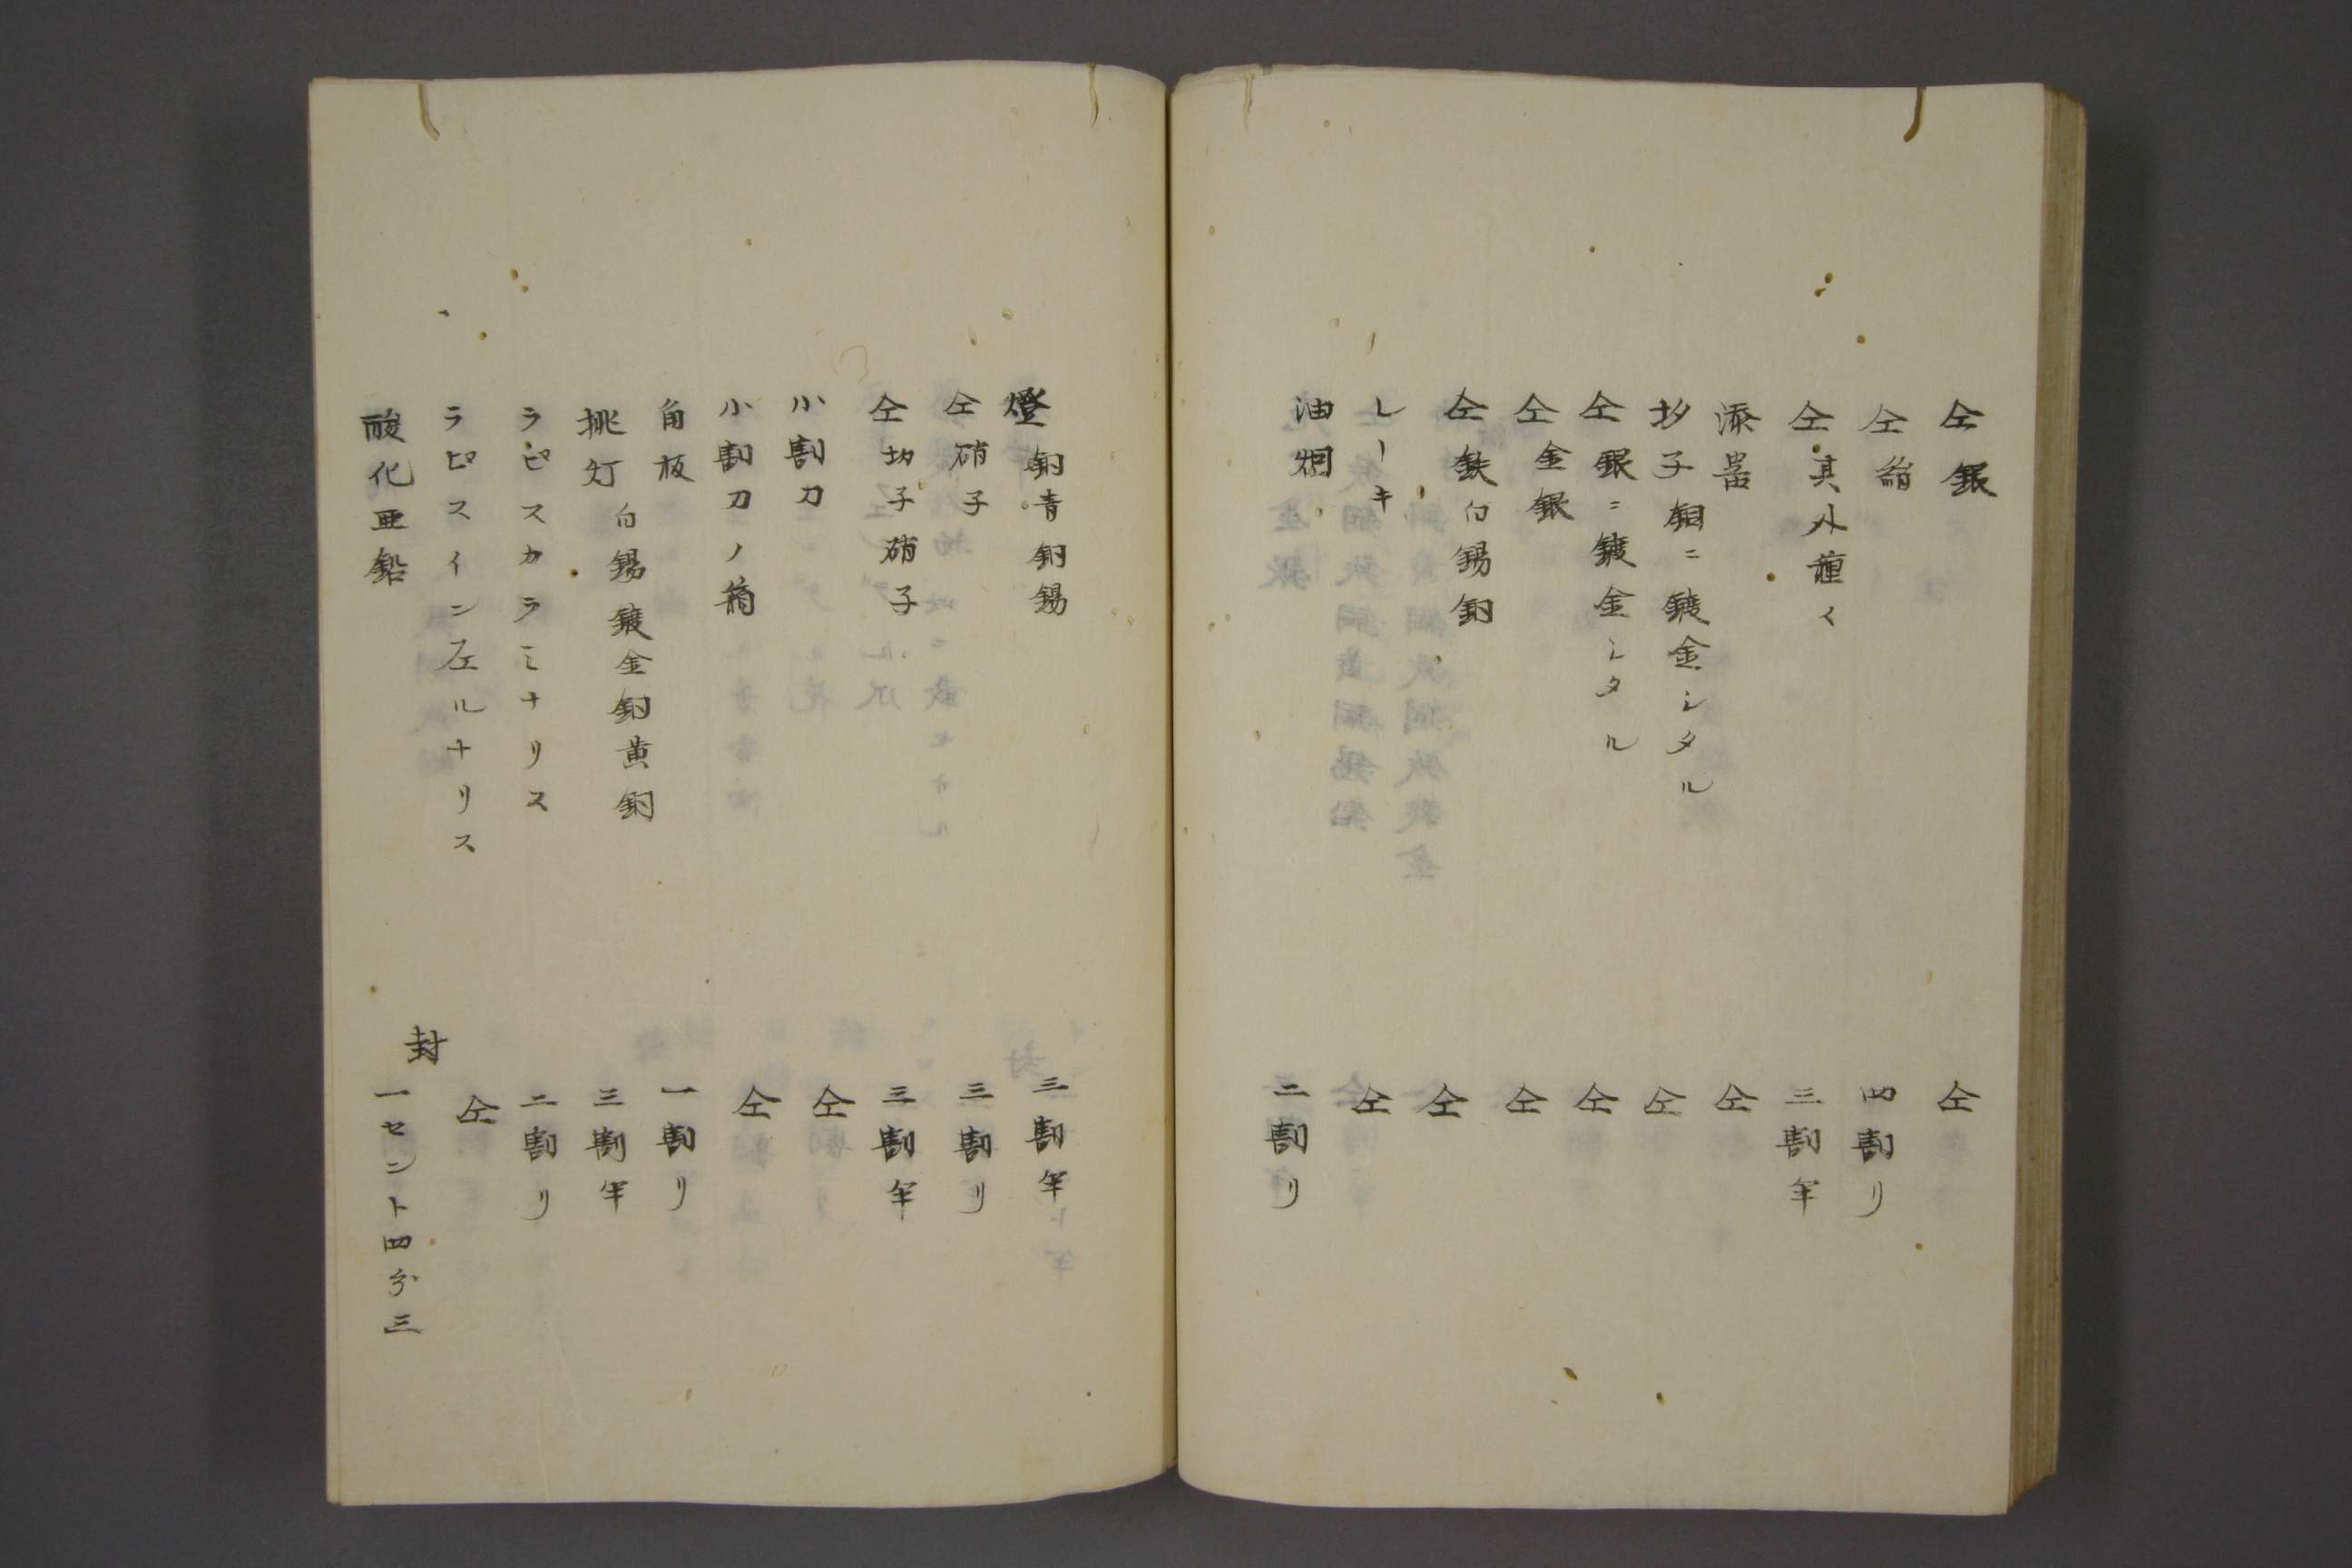 仝銀 仝
仝絹 四割リ
仝其外種々 三割半
漆器 仝
抄子銅ニ鍍金シタル 仝
仝銀ニ鍍金シタル 仝
仝金銀 仝
仝鉄白錫銅 仝
レーキ 仝
油烟 二割リ
燈銅青銅錫 三割半
仝硝子 三割リ
仝切子硝子 三割半
小割刀 仝
小割刀ノ鞘 仝
角板 一割リ
挑灯白錫鍍金銅黄銅 三割半
ラピスカラミナリス 二割リ
ラピスインフェルナリス 仝
酸化亜鉛 封 一セント四分三